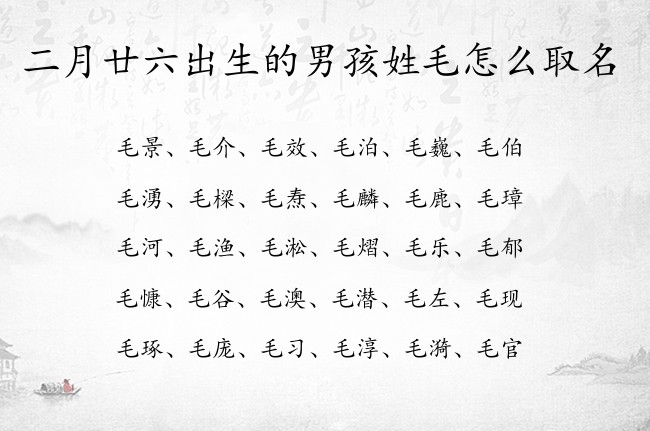 二月廿六出生的男孩姓毛怎么取名
毛景、毛介、毛效、毛泊、毛巍、毛伯
毛湧、毛樑、毛焘、毛麟、毛鹿、毛璋
毛河、毛渔、毛淞、毛熠、毛乐、毛郁
毛慷、毛谷、毛澳、毛潜、毛左、毛现
毛琢、毛庞、毛习、毛淳、毛漪、毛官